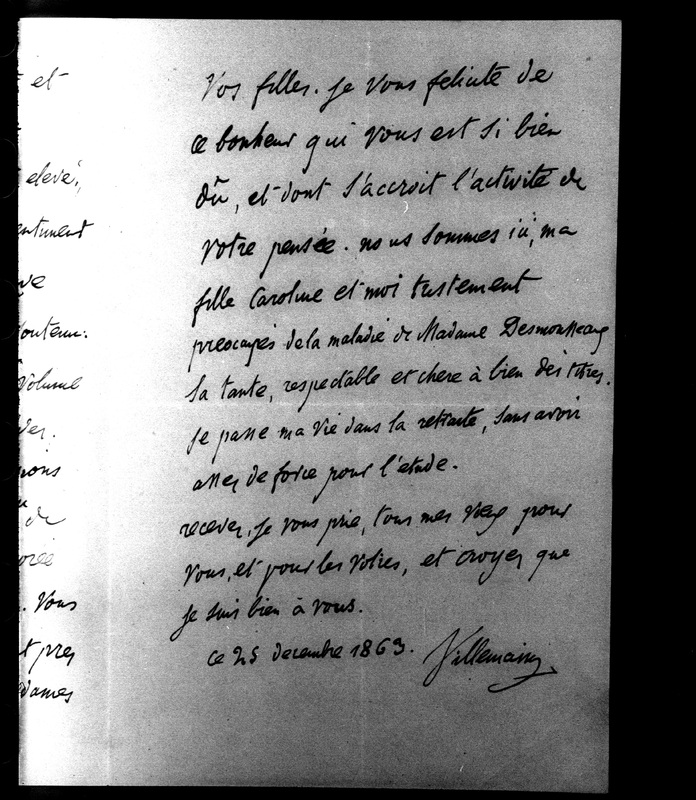 et
elevé,
entiment
ve
outenu.
volume
der.
ons
de
orée
. Vous
t prez
dames
vos filles. je vous felicite de
ce bonheur qui vous est si bien
dû, et dont s'accroit l'activité de
votre pensée. nous sommes ici, ma
fille Caroline et moi tristement
preocupés de la maladie de Madame Desmousseaux
sa tante, respectable et chere à bien des titres.
je passe ma vie dans la retraite, sans avoir
assez de force pour l'etude.
recevez, je vous prie, tous mes vœux pour
vous, et pour les votres, et croyez que
je suis bien à vous.
ce 25 decembre 1863. Villemain